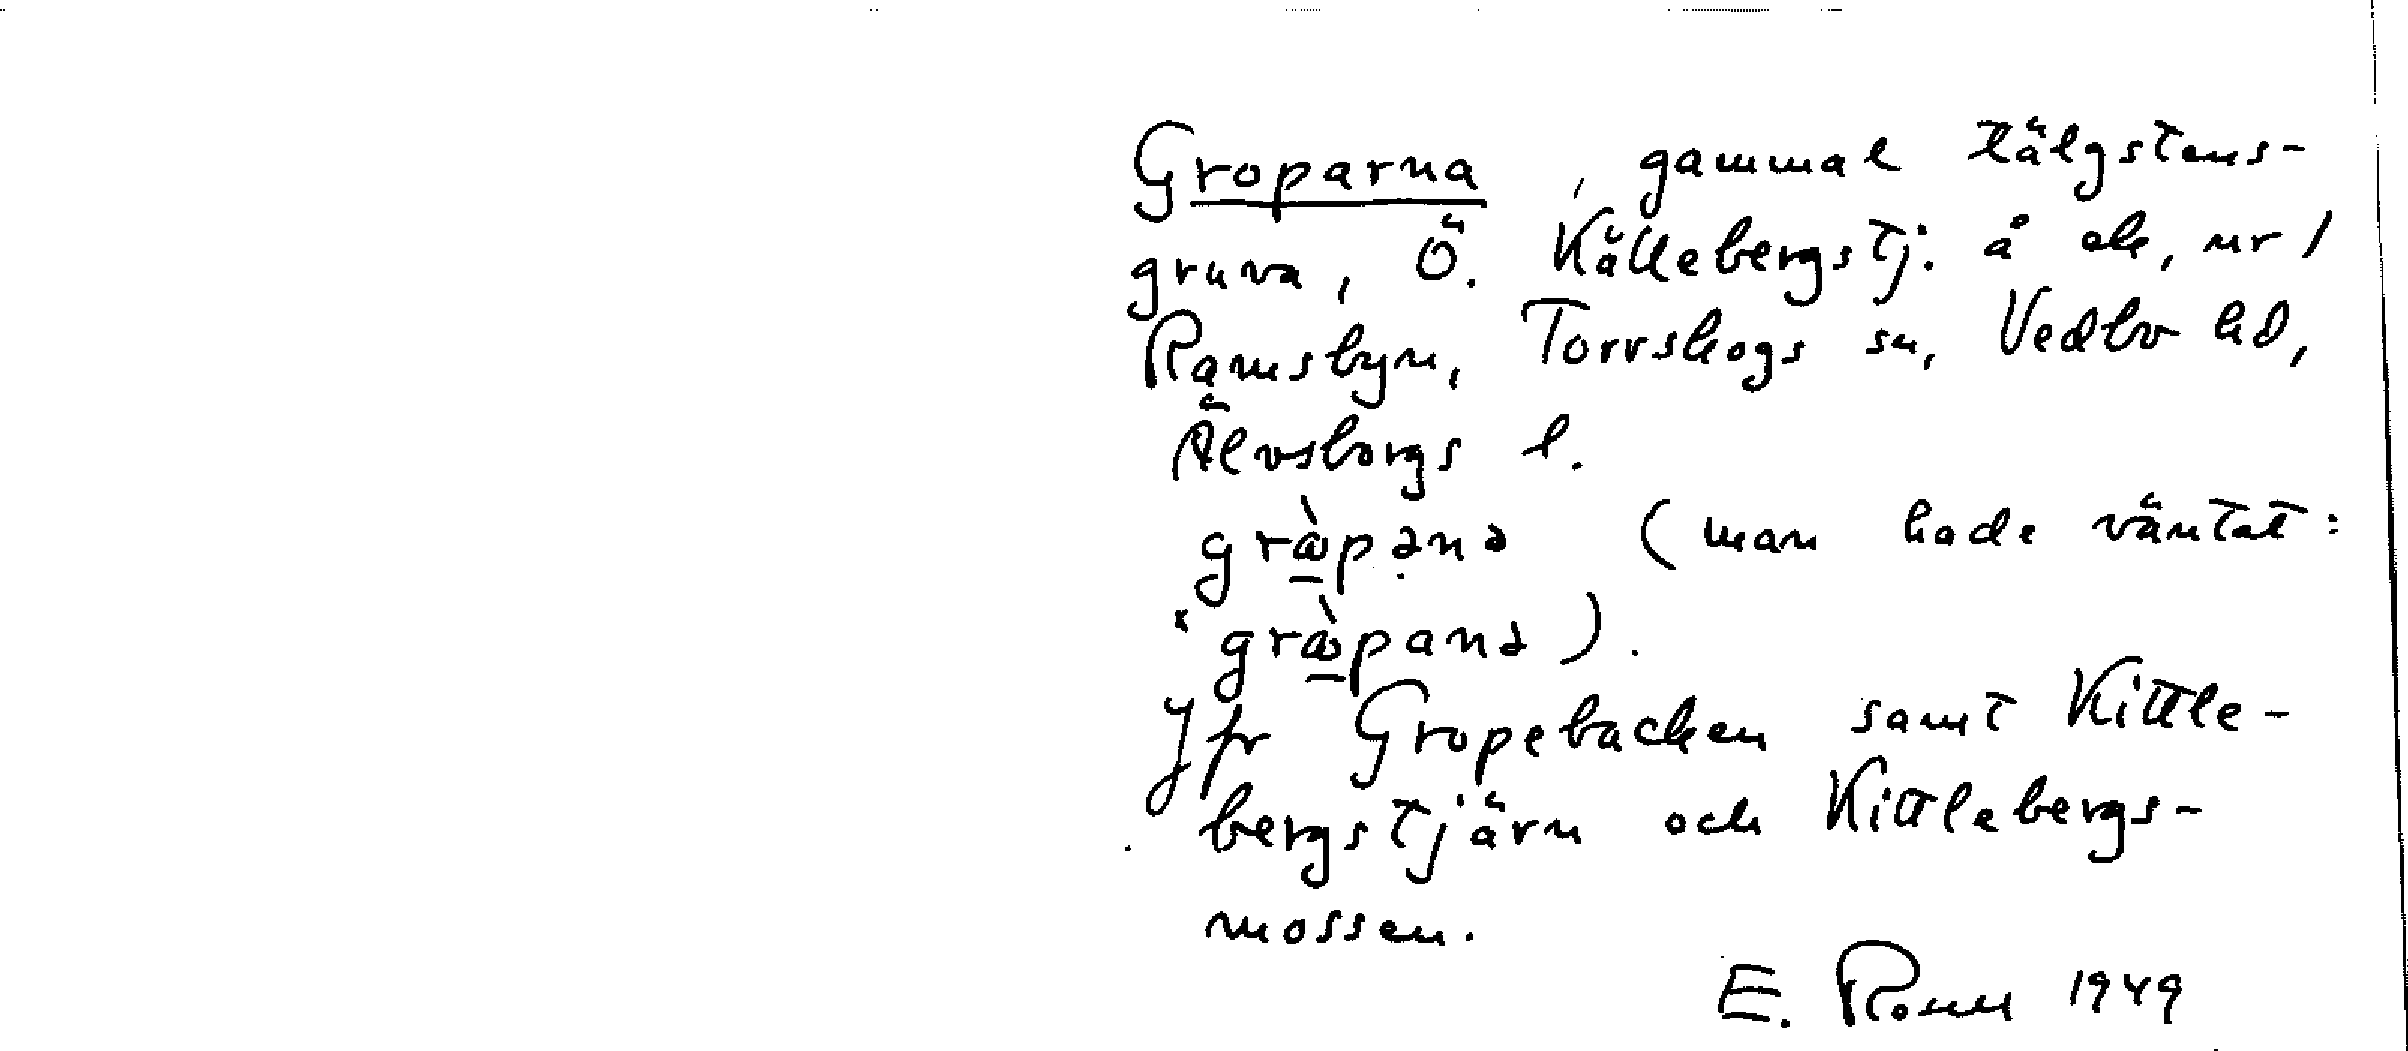 Groparna, gammal tälgstens-
gruva, Ö. Källebergstj. å ek, nr 1
Ramsbyn, Torrskogs sn, Vedbo hd,
Älvsborgs l.
(man hade väntat:
Jfr Gropebacken samt Kittle-
bergstjärn och Kittlebergs-
mossen.
E. Rosell 1949